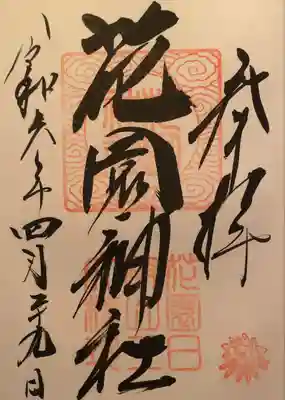 奉拝
花園神社
令和六年四月二十九日